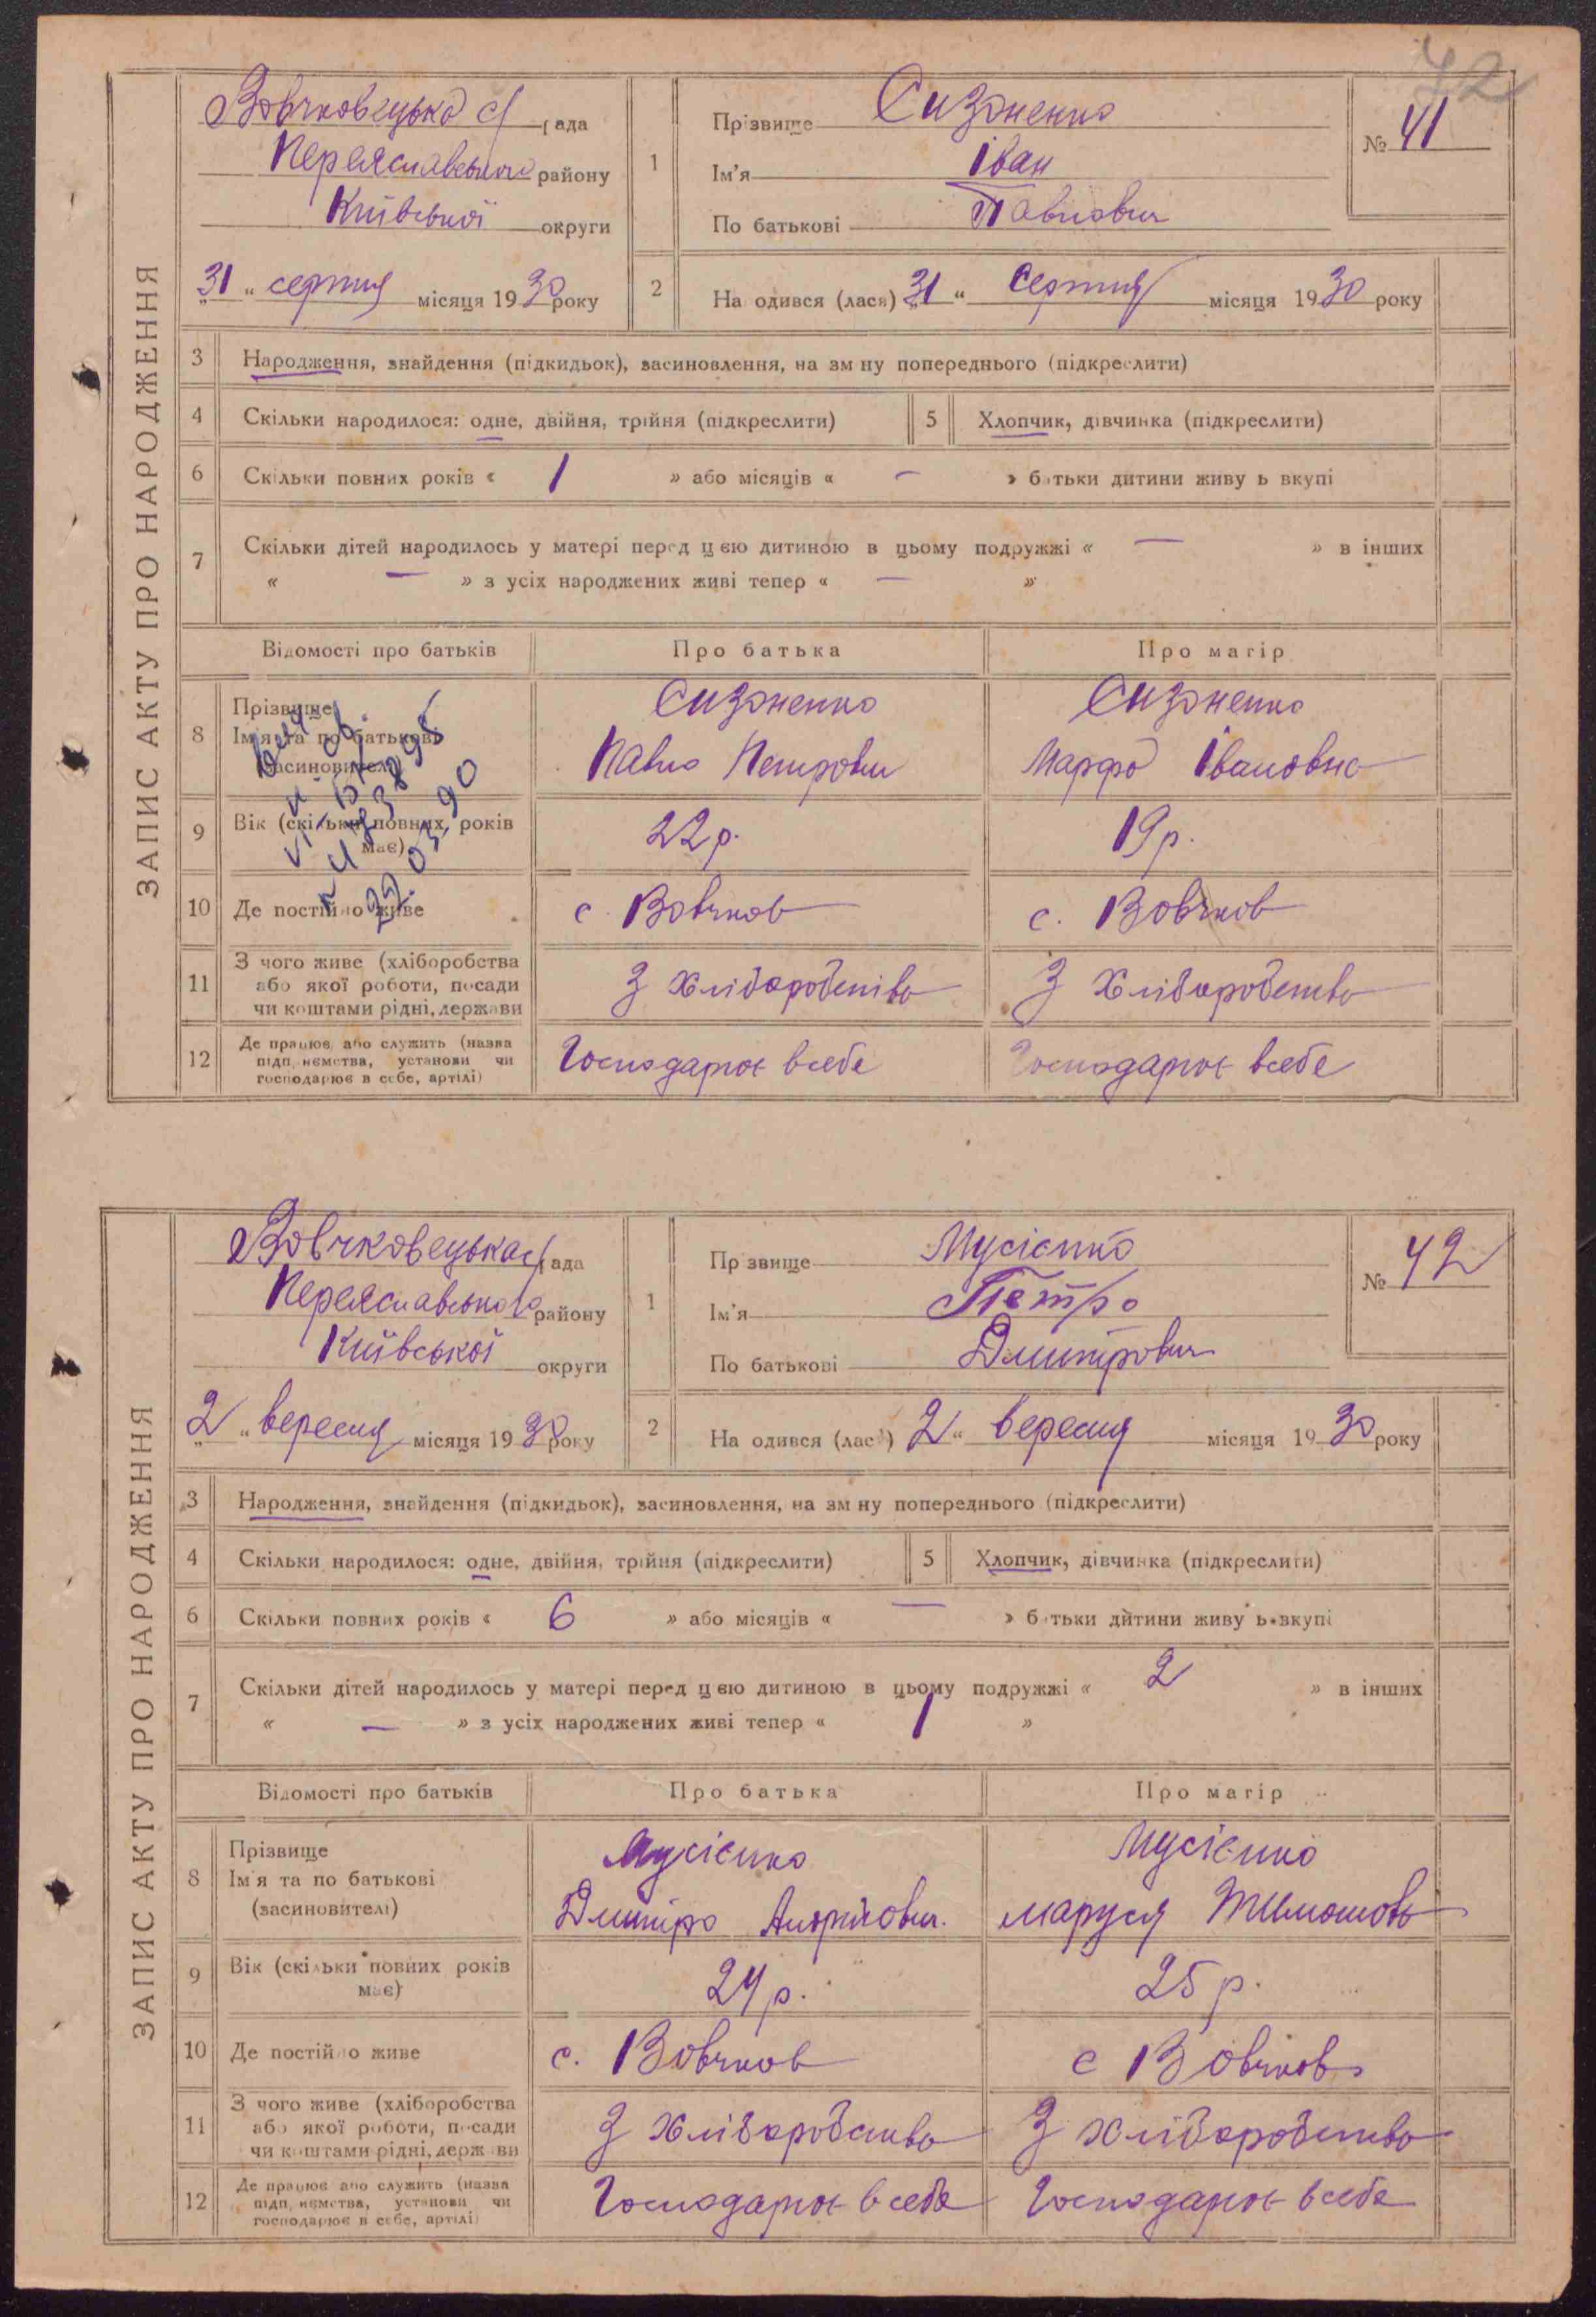 72
ЗАПИС АКТУ ПРО НАРОДЖЕННЯ
Вовчковецька с/рада
Переяславського району
Київської округи
„31“ серпня місяця 1930 року
1
Прізвище Сизоненко
Ім'я Іван
По батькові Павлович
№ 41
2
На одився (лася) „31“ Серпня місяця 1930 року
3 Народження, знайдення (підкидьок), засиновлення, на зм ну попереднього (підкреслити)
4 Скільки народилося: одне, двійня, трійня (підкреслити) 5 Хлопчик, дівчинка (підкреслити)
6 Скільки повних років « 1 » або місяців « — » батьки дитини живу ь вкупі
7 Скільки дітей народилось у матері перед цією дитиною в цьому подружжі « — » в інших
« — » з усіх народжених живі тепер « — »
Відомості про батьків Про батька Про матір
8 Прізвище Ім'я та по батькові (засиновителі)
Сизоненко Сизоненко
Павло Петрович Марфа Івановна
9 Вік (скільки повних років має) 22 р. 19 р.
22.03.90
10 Де постійно живе с. Вовчков с. Вовчков
11 З чого живе (хліборобства або якої роботи, посади чи коштами рідні, держави З хліборобства З хліборобства
12 Де працює або служить (назва підп ємства, установи чи господарює в себе, артілі) Господарює в себе Господарює в себе
ЗАПИС АКТУ ПРО НАРОДЖЕННЯ
Вовчковецька с/рада
Переяславського району
Київської округи
„2“ вересня місяця 1930 року
1
Пр звище Мусієнко
Ім'я Петро
По батькові Дмитрович
№ 42
2
На одився (лас ) „2“ вересня місяця 1930 року
3 Народження, знайдення (підкидьок), засиновлення, на зм ну попереднього (підкреслити)
4 Скільки народилося: одне, двійня, трійня (підкреслити) 5 Хлопчик, дівчинка (підкреслити)
6 Скільки повних років « 6 » або місяців « — » б тьки дитини живу ь вкупі
7 Скільки дітей народилось у матері перед цією дитиною в цьому подружжі « 2 » в інших
« — » з усіх народжених живі тепер « 1 »
Відомості про батьків Про батька Про матір
8 Прізвище Ім'я та по батькові (засиновителі)
Мусієнко Мусієнко
Дмитро Маруся
9 Вік (скільки повних років має) 24 р. 25 р.
10 Де постійно живе с. Вовчков с Вовчков
11 З чого живе (хліборобства або якої роботи, посади чи коштами рідні, держ ви З хліборобства З хліборобства
12 Де працює або служить (назва підп ємства, установи чи господарює в себе, артілі) Господарює в себе Господарює в себе